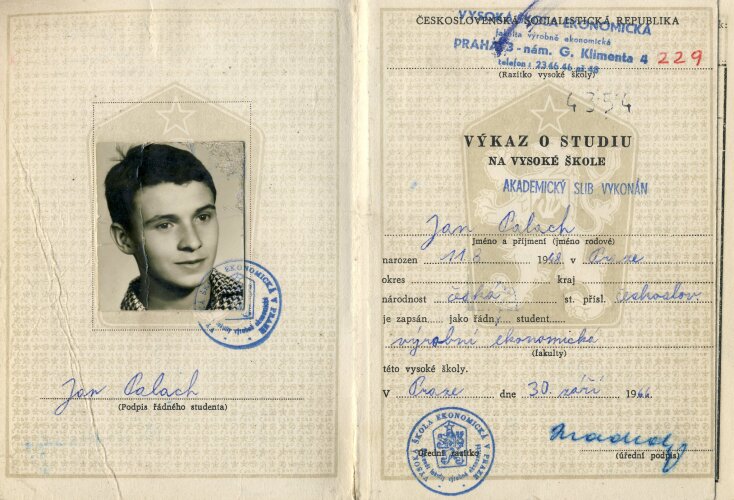 Jan Palach
(Podpis řádného studenta)
ČESKOSLOVENSKÁ SOCIALISTICKÁ REPUBLIKA
VYSOKÁ ŠKOLA EKONOMICKÁ
fakulta výrobně ekonomická
PRAHA 3 - nám. G. Klimenta 4
229
telefon: 23 46 46
(Razítko vysoké školy)
4354
VÝKAZ O STUDIU
NA VYSOKÉ ŠKOLE
AKADEMICKÝ SLIB VYKONÁN
Jan Palach
Jméno a příjmení (jméno rodové)
narozen 11 8 1948 v Praze
okres kraj
národnost česká st. přísl. českoslov
je zapsán jako řádný student
výrobní ekonomická
(fakulty)
této vysoké školy.
V Praze dne 30 září 1966.
VYSOKÁ ŠKOLA EKONOMICKÁ V PRAZE
Úřední razítko
(úřední podpis)